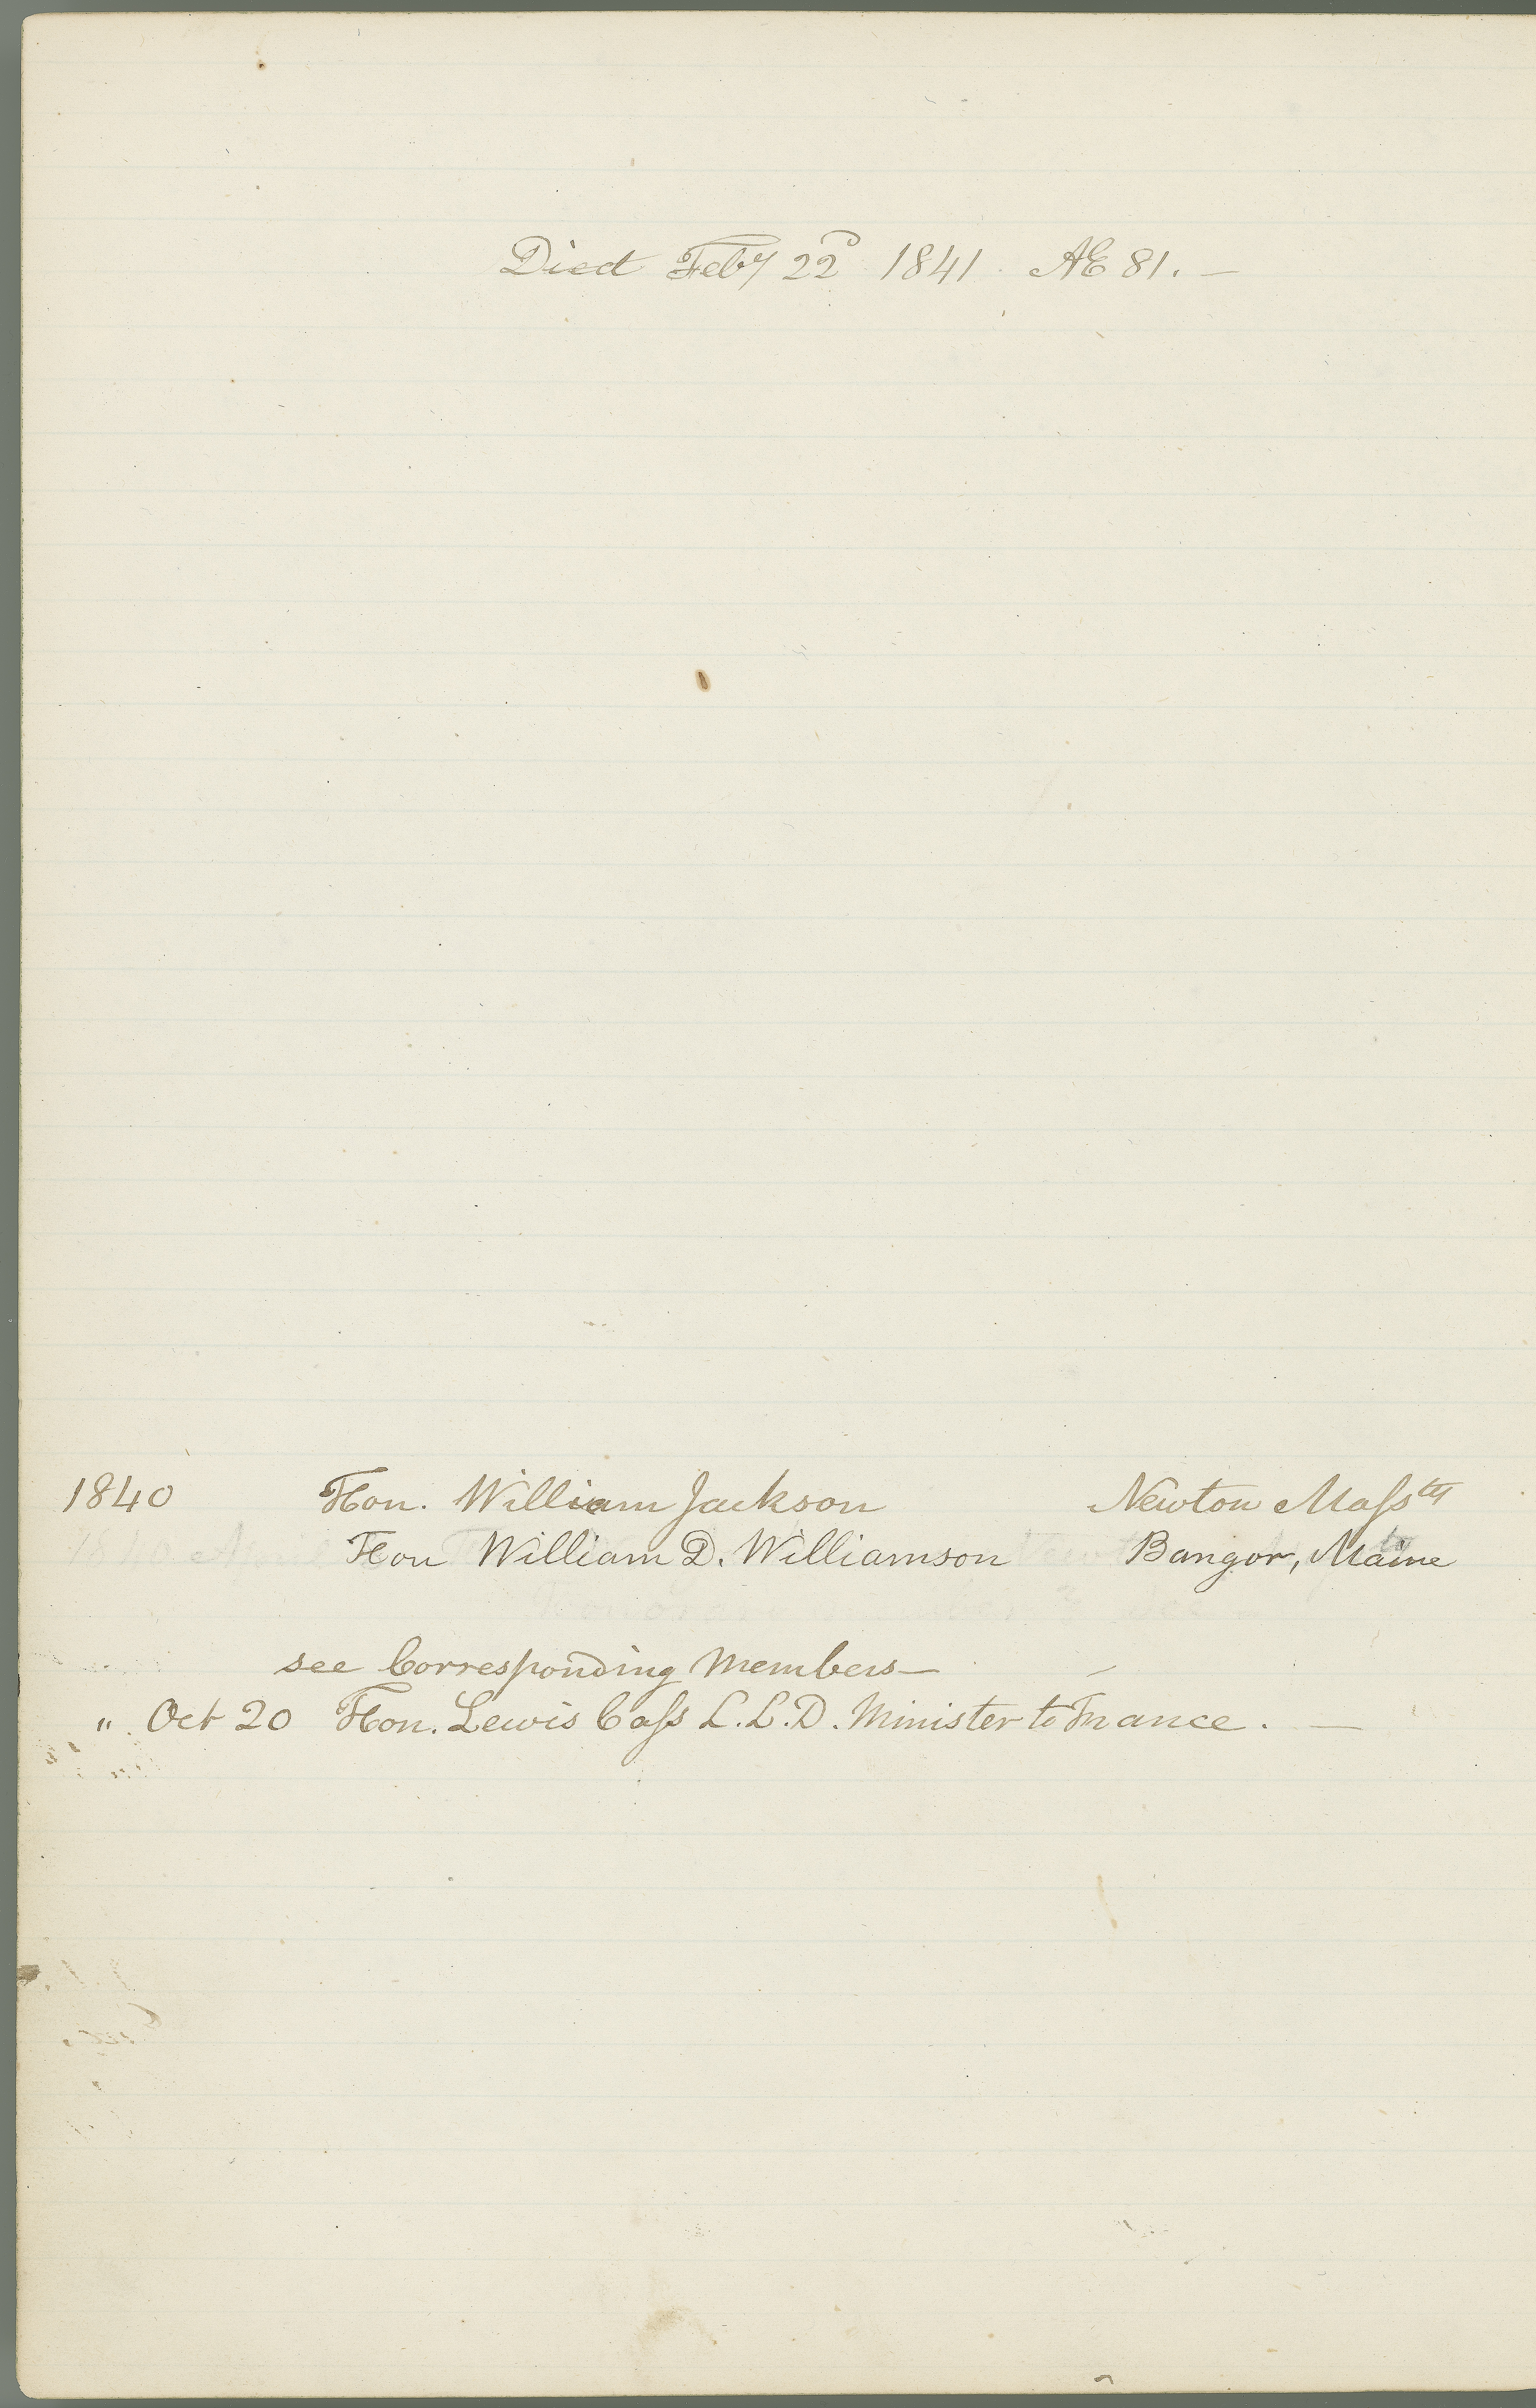 Died Feby 22d 1841. AE 81. —
1840 Hon. William Jackson Newton Massts
Hon William D. Williamson Bangor, Maine
see Corresponding Members —
" Oct 20 Hon. Lewis Cass L.L.D. Minister to France. —